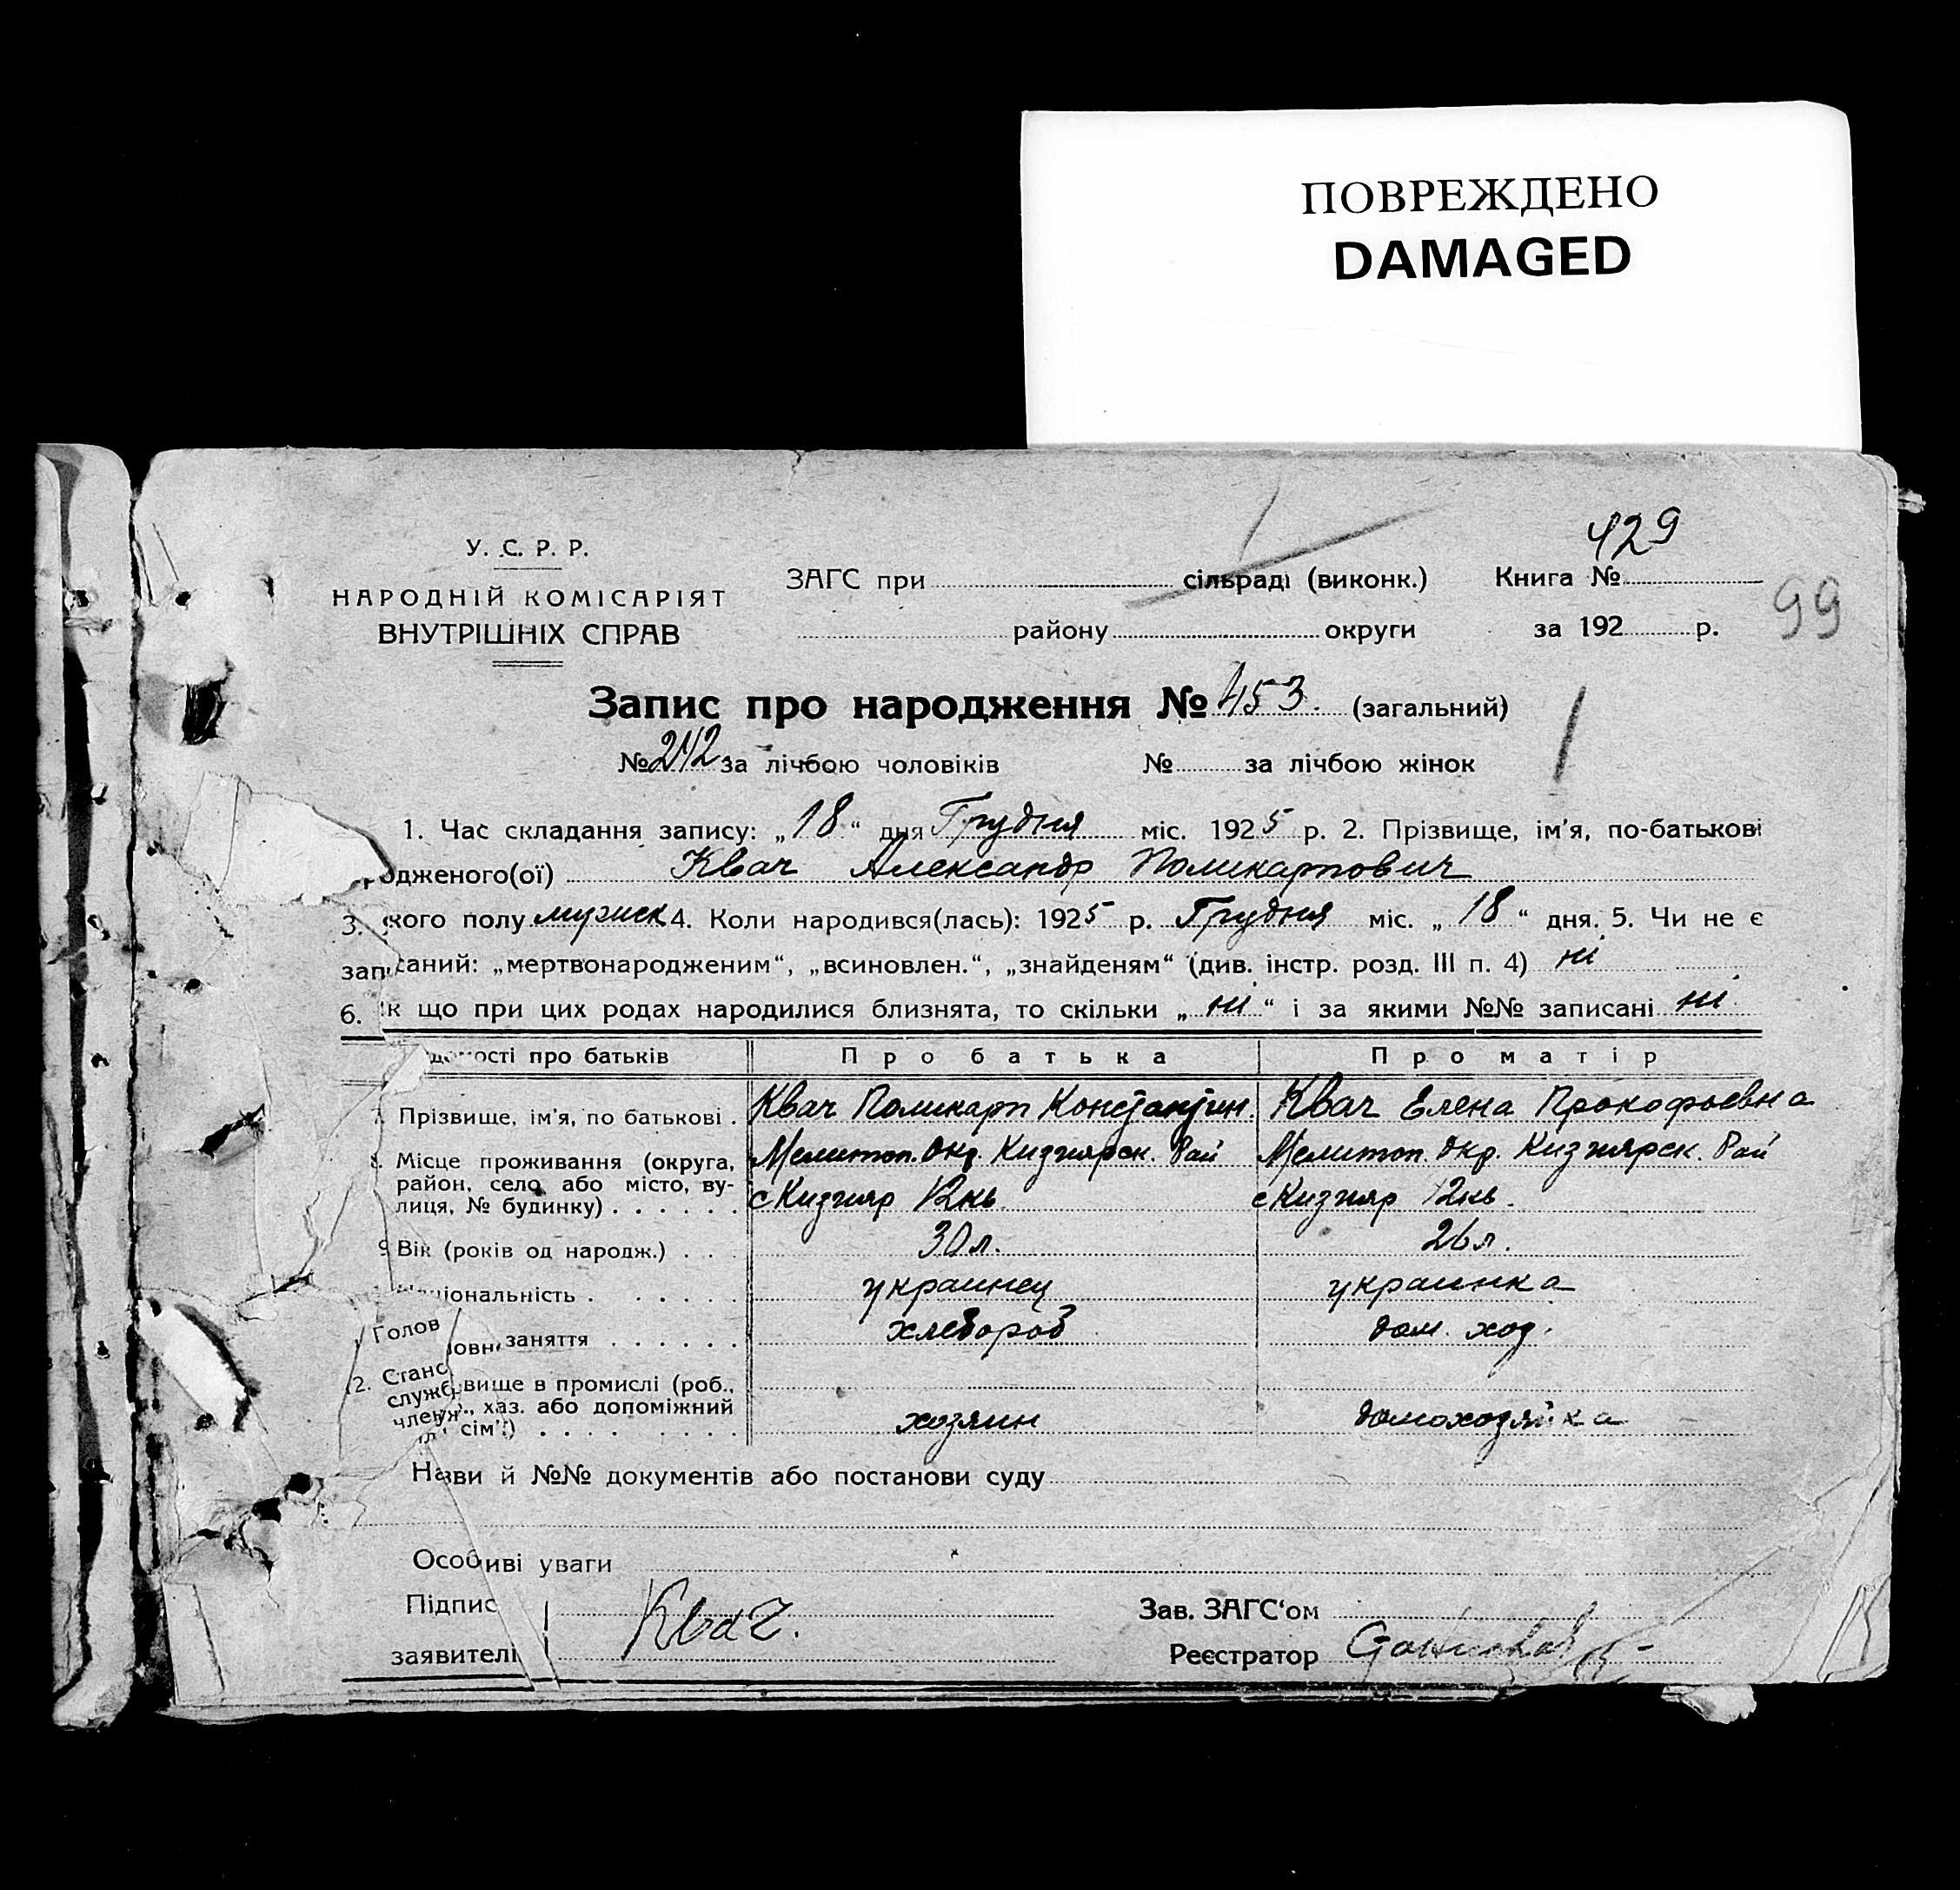 ПОВРЕЖДЕНО
DAMAGED
429
У. С. Р. Р.
НАРОДНІЙ КОМІСАРІЯТ
ВНУТРІШНІХ СПРАВ
ЗАГС при сільраді (виконк.) Книга №
району округи за 192 р.
99
Запис про народження № 453. (загальний)
№ 242 за лічбою чоловіків № за лічбою жінок
1. Час складання запису: „18“ дня Грудня міс. 1925 р. 2. Прізвище, ім'я, по-батькові
родженого(ої) Квач Александр Поликарпович
3. кого полу мужск 4. Коли народився(лась): 1925 р. Грудня міс. „18“ дня. 5. Чи не є
записаний: „мертвонародженим“, „всиновлен.“, „знайденям“ (див. інстр. розд. III п. 4) ні
6. к що при цих родах народилися близнята, то скільки „ні“ і за якими №№ записані ні
домості про батьків Про батька Про матір
7. Прізвище, ім'я, по батькові . Квач Поликарп Константин. Квач Елена Прокофьевна
8. Місце проживання (округа, Мелитоп. Окр. Кизиярск. Рай Мелитоп. Окр. Кизиярск. Рай
район, село або місто, ву-
лиця, № будинку) . . . . . . с Кизияр с Кизияр
9 Вік (років од народж.) . . . 30 л. 26 л.
ціональність . . . . . украинец украинка
Голов
овн. заняття . . . . . . хлебороб дом. хоз.
12. Стано
вище в промислі (роб.,
служб., хаз. або допоміжний
член сім'ї) . . . . . . . . хозяин домохозяйка
Назви й №№ документів або постанови суду
Особиві уваги
Підпис Квач. Зав. ЗАГС'ом
заявителі Реєстратор